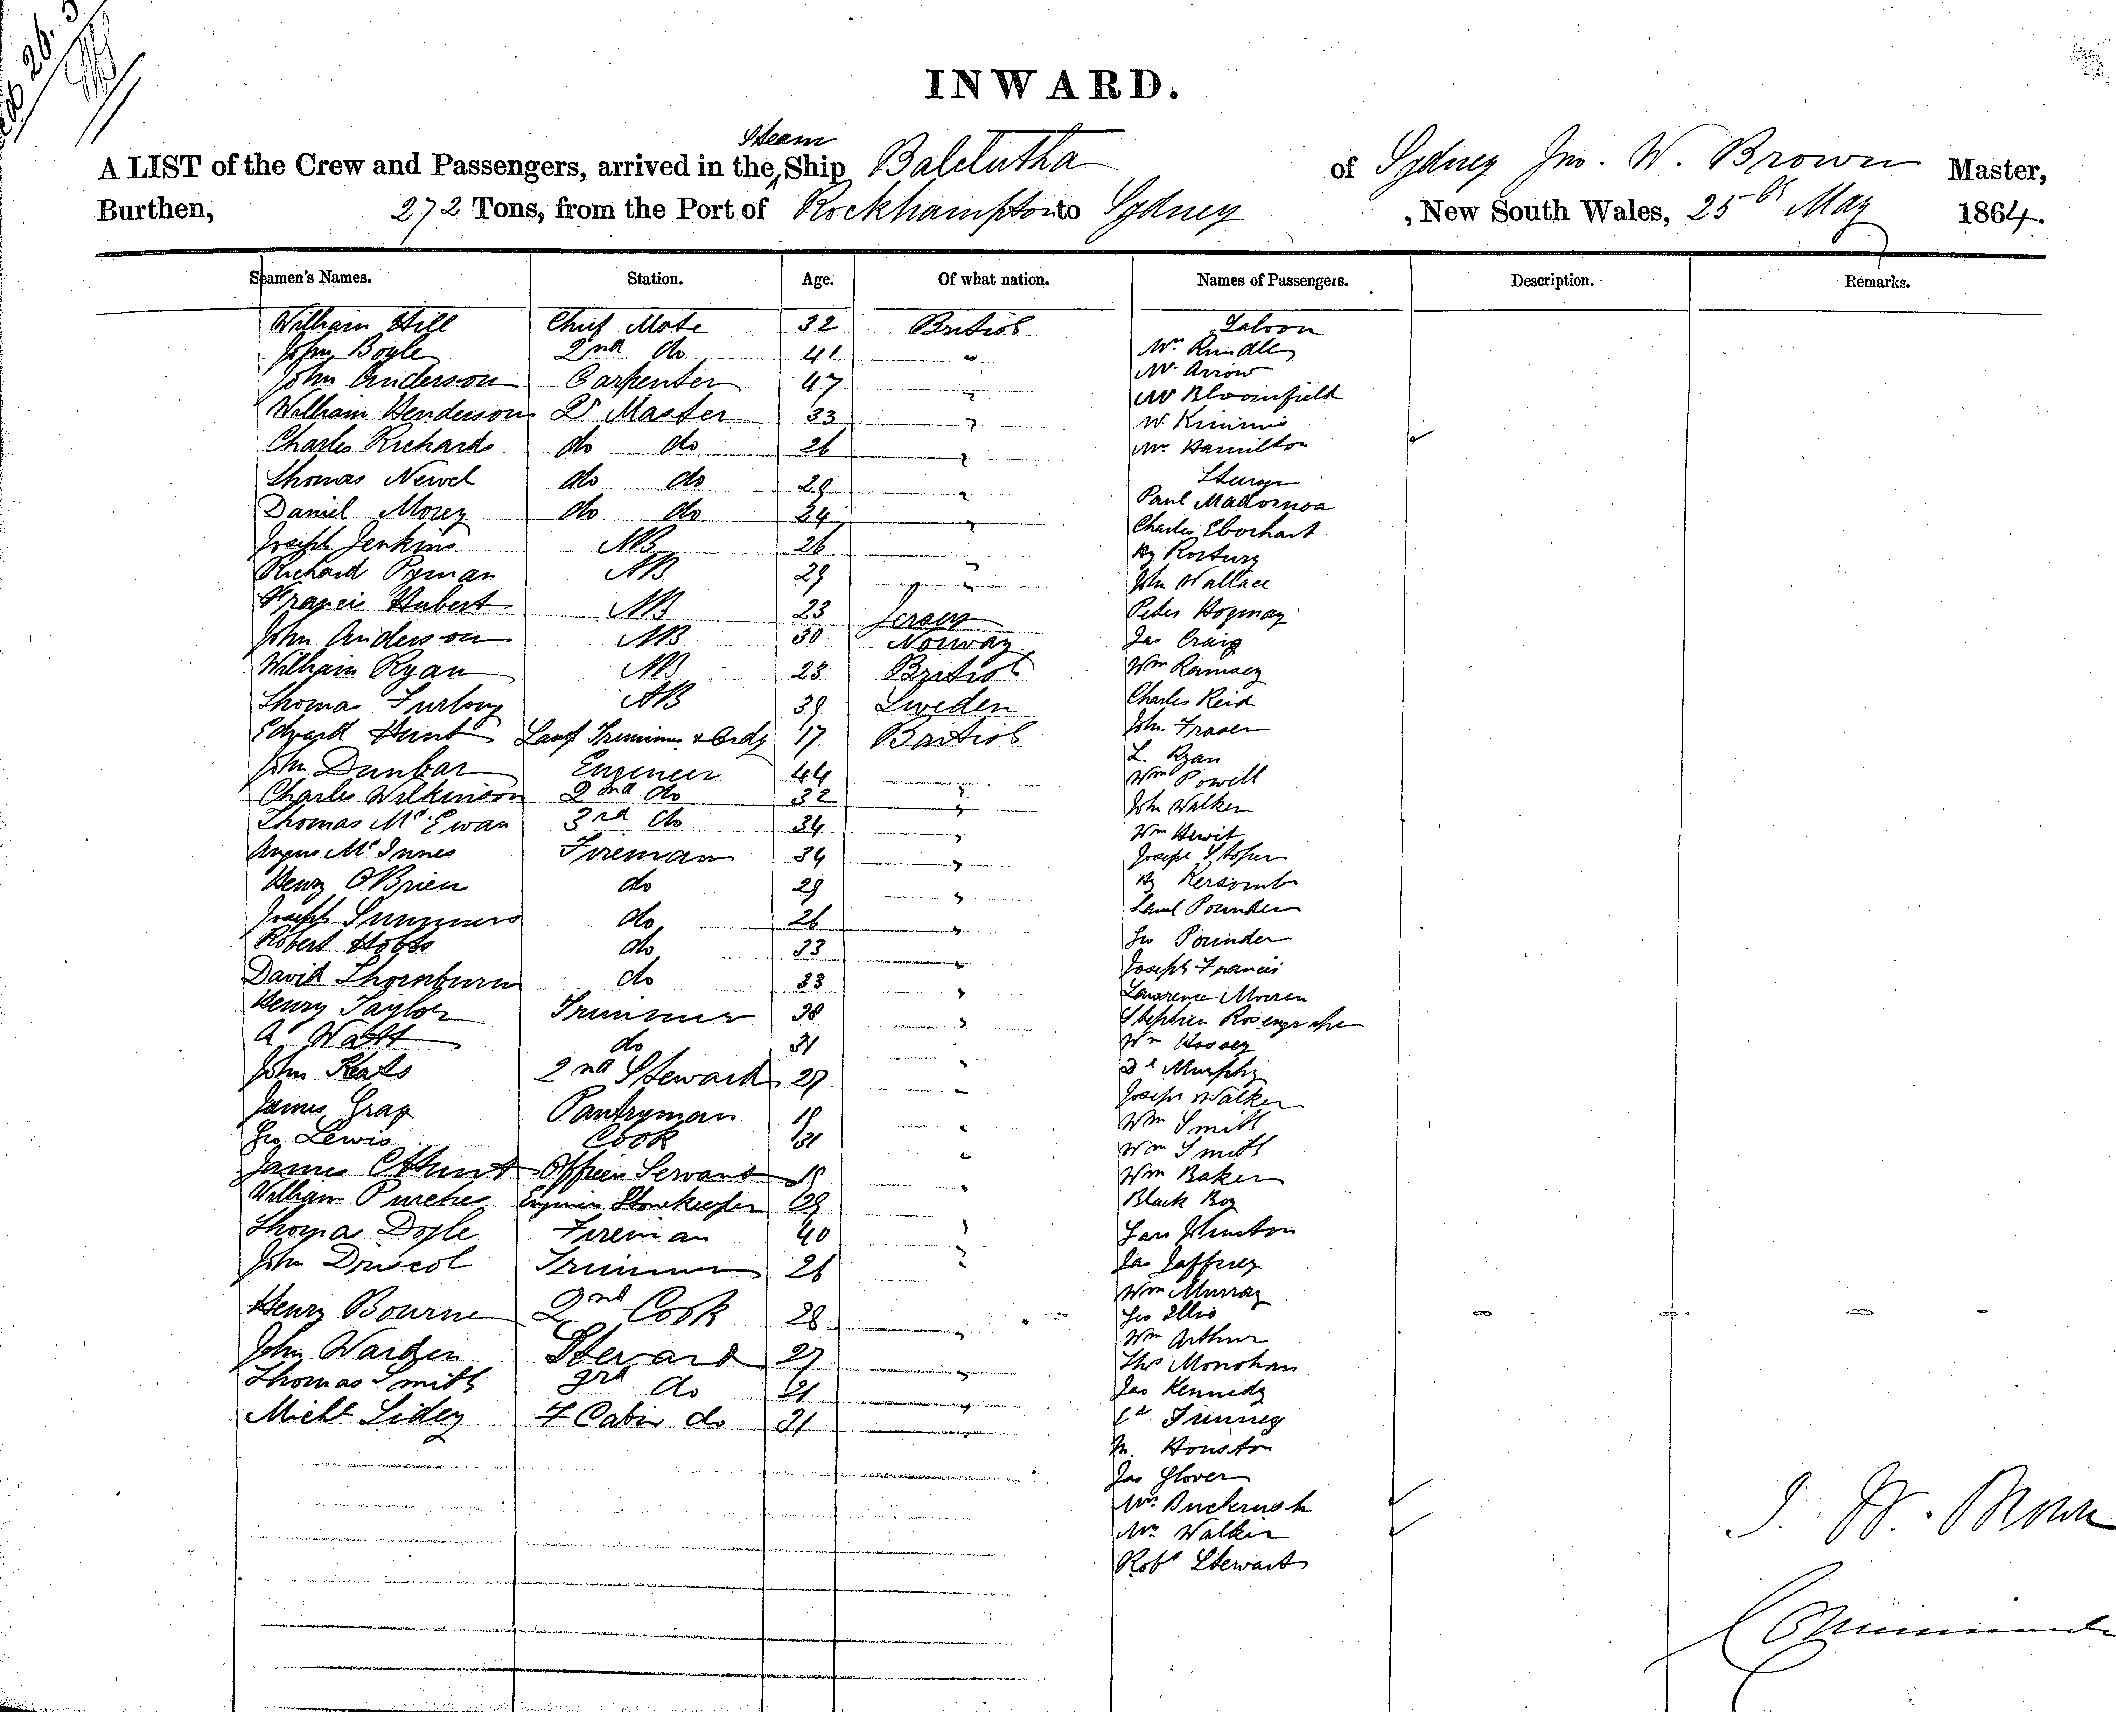 INWARD.
A LIST of the Crew and Passengers, arrived in the Steam Ship Balclutha of Sydney Jno. W. Brown Master,
Burthen, 272 Tons, from the Port of Rockhampton to Sydney, New South Wales, 25th May 1864.
Seamen's Names. Station. Age. Of what nation. Names of Passengers. Description. Remarks.
William Hill Chief Mate 32 British
John Boyle 2nd do 41 "
John Anderson Carpenter 47 "
William Henderson Qr Master 33 "
Charles Richards do do 26 "
Thomas Newel do do 29 "
Daniel Morey do do 34 "
Joseph Jenkins AB 26 "
Richard Pyman AB 29 "
Francis Hubert AB 23 Jersey
John Anderson AB 30 Norway
William Ryan AB 23 British
Thomas Furlong AB 39 Sweden
Edward Hunt Lamp Trimmer & Ordy 17 British
John Dunbar Engineer 44 "
Charles Wilkinson 2nd do 32 "
Thomas McEwan 3rd do 34 "
Angus McInnes Fireman 34 "
Henry O'Brien do 29 "
Joseph Summers do 26 "
Robert Hobbs do 33 "
David Thornburn do 33 "
Henry Taylor Trimmer 30 "
A Watt do 31 "
John Keats 2nd Steward 27 "
James Gray Pantryman 19 "
Geo Lewis Cook 31 "
James Officers Servant 19 "
William Storekeeper 29 "
Thomas Doyle Fireman 40 "
John Driscol Trimmer 26 "
Henry Bourne 2nd Cook 28 "
John Warden Steward 27 "
Thomas Smith 3rd do 21 "
Michl Sidey F Cabin do 31 "
Saloon
Mr Rundle
Mr Arrow
Mr Bloomfield
Mr Hamilton
Steerage
Paul
Charles Eberhart
Hy
John Wallace
Peter
Jas Craig
Wm Ramsey
Charles Reid
John Fraser
L. Ryan
Wm Powell
John Walker
Wm Hewit
Joseph
Hy
Saml Pounder
Geo Pounder
Joseph Francis
Lawrence
Stephen
Wm Hossey
Dl Murphy
Joseph Walker
Wm Smith
Wm Smith
Wm Baker
Black Boy
Jas Jaffrey
Wm Murray
Geo Ellis
Wm Arthur
Thos Monohan
Jas Kennedy
M. Houston
Jas Glover
Mrs
Mrs Walker
Robt Stewart
J. W. Brown